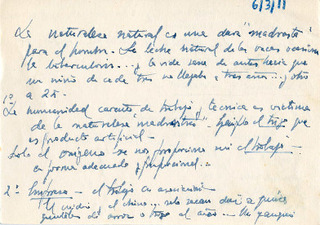 6/3/81
La naturaleza natural es una dura "madrastra"
para el hombre. La leche natural de las vacas ocasiona
la tuberculosis... y la vida sana de antes hacía que
un niño de cada tres no llegaba a tres años... y otro
a 25.
1º La humanidad carente de trabajo y técnica es víctima
de la naturaleza "madrastra". Ejemplo el trigo que
es producto artificial.
Solo el oxígeno se nos proporciona sin el trabajo
en forma adecuada y
2º Empresa - el trabajo en asociación
Un indio, el chino... solo
de arroz o trigo al año. Un yanqui